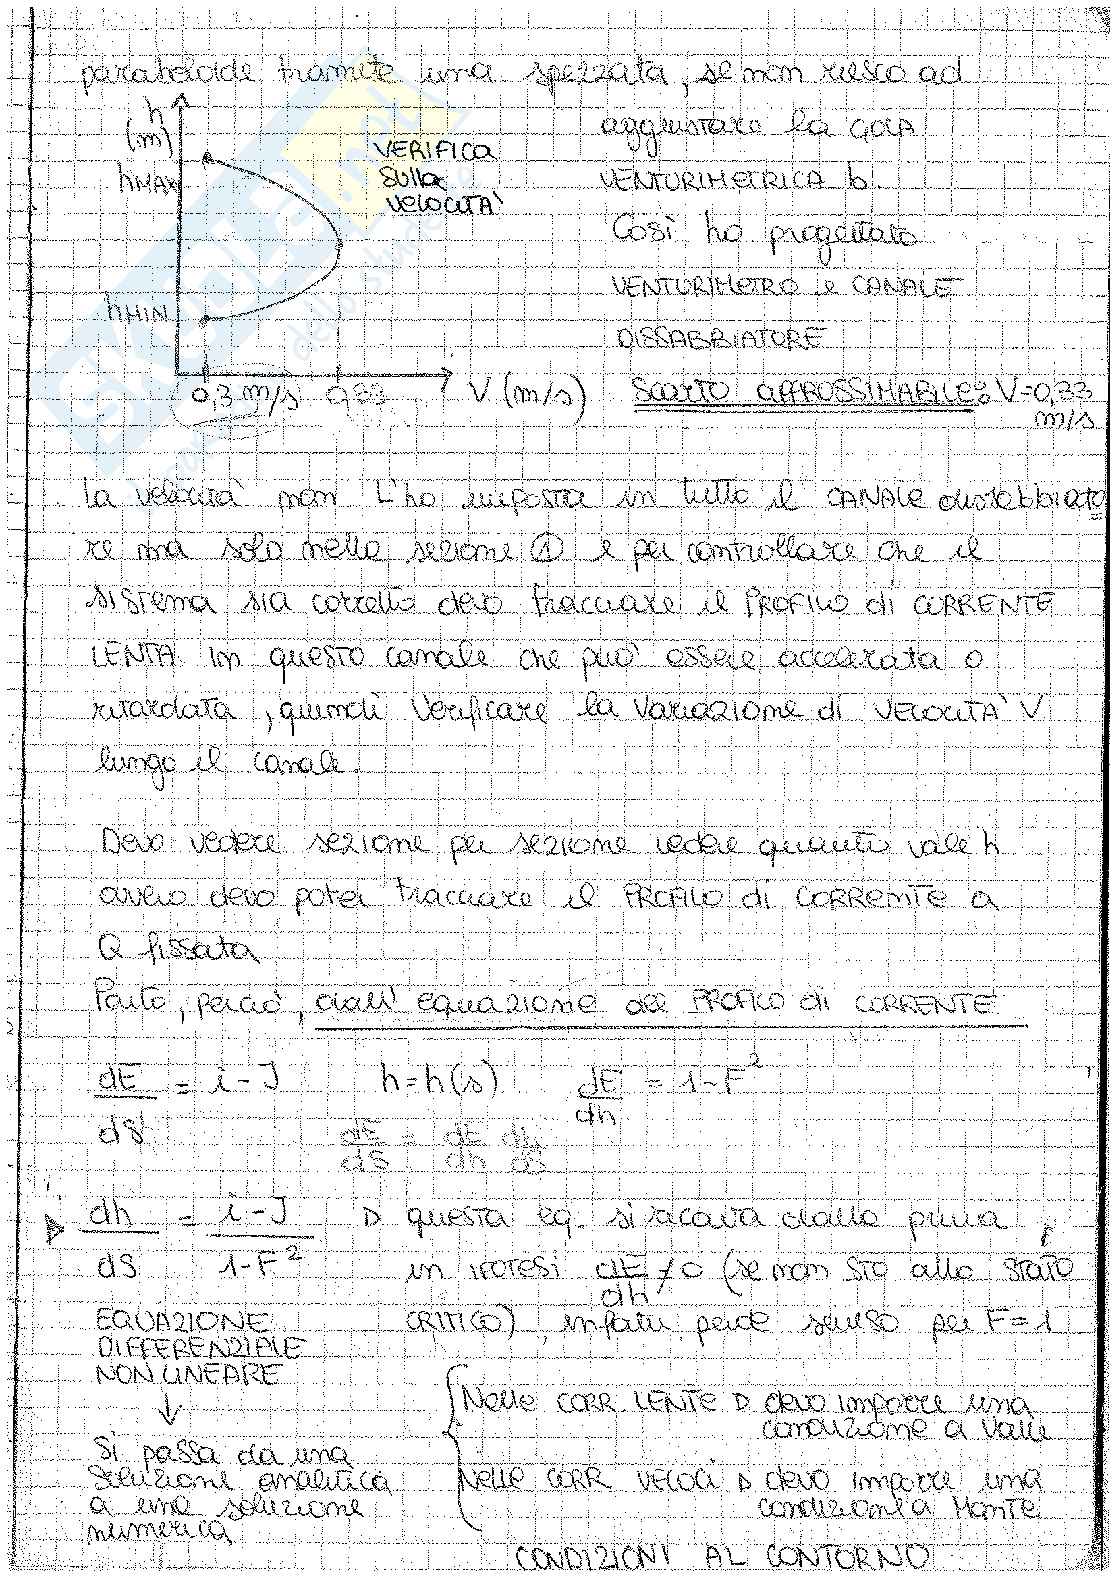 paraboloide tramite una spezzata, se non riesco ad
aggiustare la GOLA
VENTURIMETRICA b.
Così ho progettato
VENTURIMETRO e CANALE
DISSABBIATORE
h
(m)
hMAX
hMIN
VERIFICA
SULLA
VELOCITA'
0,3 m/s 0,33 V (m/s)
SCARTO APPROSSIMABILE: V=0,33
m/s
La velocità non l'ho imposta in tutto il CANALE dissabbiato
re ma solo nella sezione ① e per controllare che il
SISTEMA SIA corretto devo tracciare il PROFILO di CORRENTE
LENTA in questo canale che può essere accelerata o
ritardata, quindi Verificare la Variazione di VELOCITA' V
lungo il canale.
Devo vedere sezione per sezione vedere quanto vale h
ovvero devo poter tracciare il PROFILO di CORRENTE a
Q fissata
Parto, perciò, dall'equazione del PROFILO di CORRENTE
dE/dS = i-J h=h(s) dE/dh = 1-F²
dE/dS = dE/dh dh/dS
dh/dS = i-J/1-F² questa eq. si ricava dalla prima
in IPOTESI dE/dh ≠0 (se non STO allo STATO
CRITICO), infatti perde senso per F=1
EQUAZIONE
DIFFERENZIALE
NON LINEARE
↓
Si passa da una
soluzione analitica
a una soluzione
numerica
Nelle CORR LENTE devo imporre una
condizione a Valle
Nelle CORR VELOCI devo imporre una
condizione a Monte
CONDIZIONI AL CONTORNO